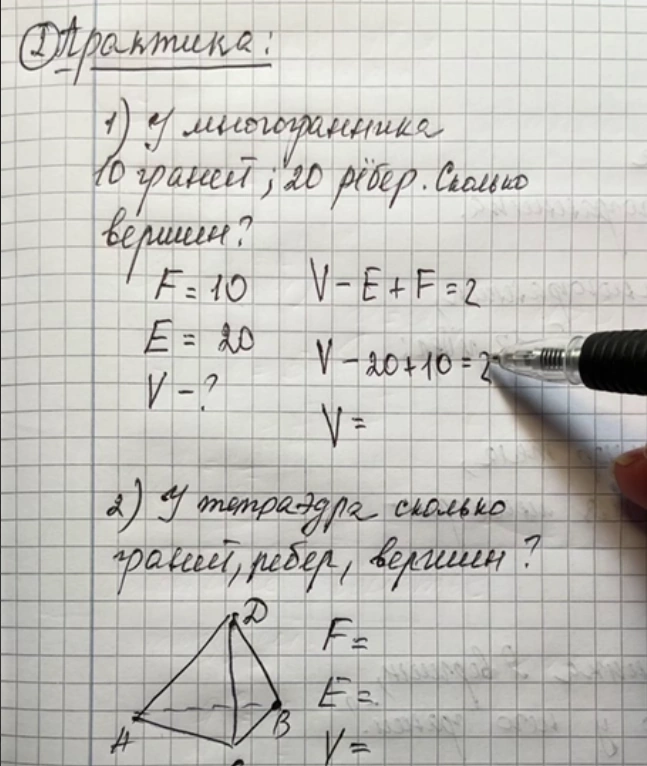 ① Практика:
1) У многогранника
10 граней; 20 рёбер. Сколько
вершин?
F = 10 V - E + F = 2
E = 20 V - 20 + 10 = 2
V - ?
V =
2) У тетраэдра сколько
граней, ребер, вершин?
D
F =
E =
A B
V =